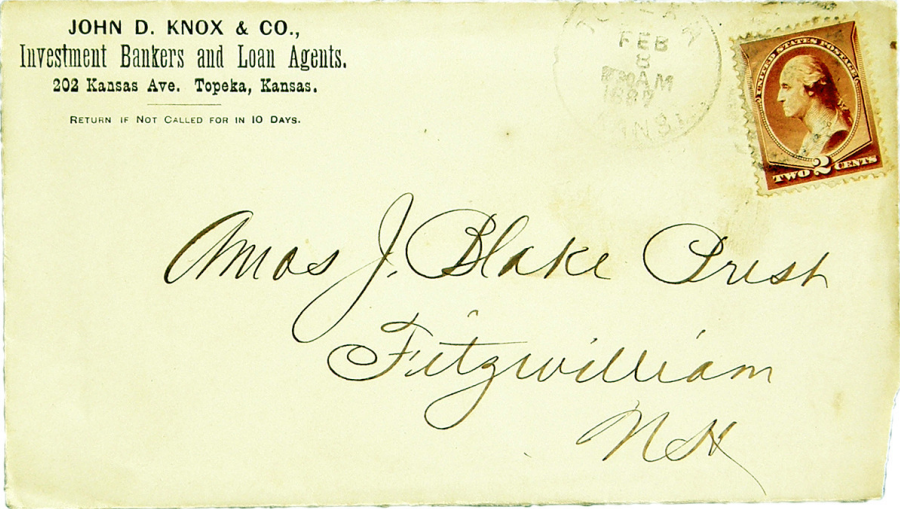 JOHN D. KNOX & CO.,
Investment Bankers and Loan Agents.
202 Kansas Ave. Topeka, Kansas.
RETURN IF NOT CALLED FOR IN 10 DAYS.
FEB
8
AM
1887
KANS.
UNITED STATES POSTAGE
TWO 2 CENTS
Amos J. Blake Prest
Fitzwilliam
NH